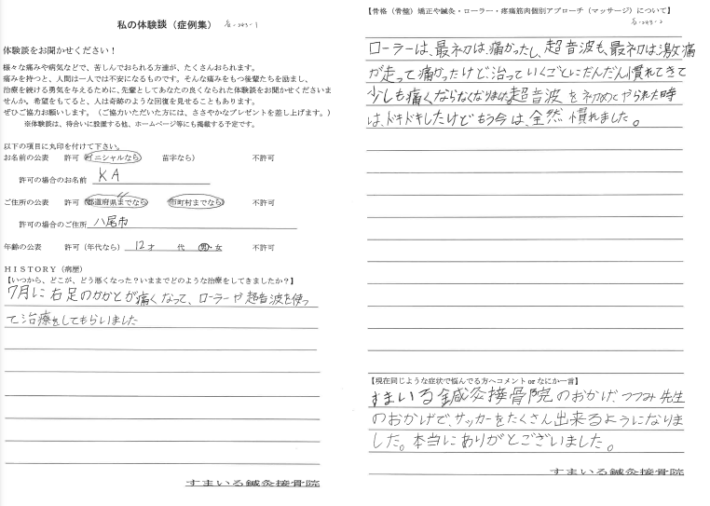 私の体験談（症例集）
体験談をお聞かせください！
様々な痛みや病気などで、苦しんでおられる方達が、たくさんおられます。
痛みを持つと、人間は一人では不安になるものです。そんな痛みをもつ後輩たちを励まし、
治療を続ける勇気を与えるために、先輩としてあなたの良くなられた体験談をお聞かせくださいま
せんか。希望をもてると、人は奇跡のような回復を見せることもあります。
ぜひご協力お願いします。（ご協力いただいた方には、ささやかなプレゼントを差し上げます。）
※体験談は、待合いに設置する他、ホームページ等にも掲載する予定です。
以下の項目に丸印を付けて下さい。
お名前の公表 許可（イニシャルなら） 苗字なら） 不許可
許可の場合のお名前 KA
ご住所の公表 許可（都道府県までなら） 市町村までなら） 不許可
許可の場合のご住所 八尾市
年齢の公表 許可（年代なら） 12才 代 男・女 不許可
HISTORY（病歴）
【いつから、どこが、どう悪くなった？いままでどのような治療をしてきましたか？】
7月に右足のかかとが痛くなって、ローラーや超音波を使っ
て治療をしてもらいました
すまいる鍼灸接骨院
【骨格（骨盤）矯正や鍼灸・ローラー・疼痛筋肉個別アプローチ（マッサージ）について】
ローラーは、最初は、痛かったし、超音波も、最初は激痛
が走って痛かったけど、治っていくごとにだんだん慣れてきて
少しも痛くならなくなりました超音波を初めてやられた時
は、ドキドキしたけどもう今は、全然慣れました。
【現在同じような症状で悩んでる方へコメント or なにか一言】
すまいる鍼灸接骨院のおかげ、つつみ先生
のおかげで、サッカーをたくさん出来るようになりま
した。本当にありがとございました。
すまいる鍼灸接骨院